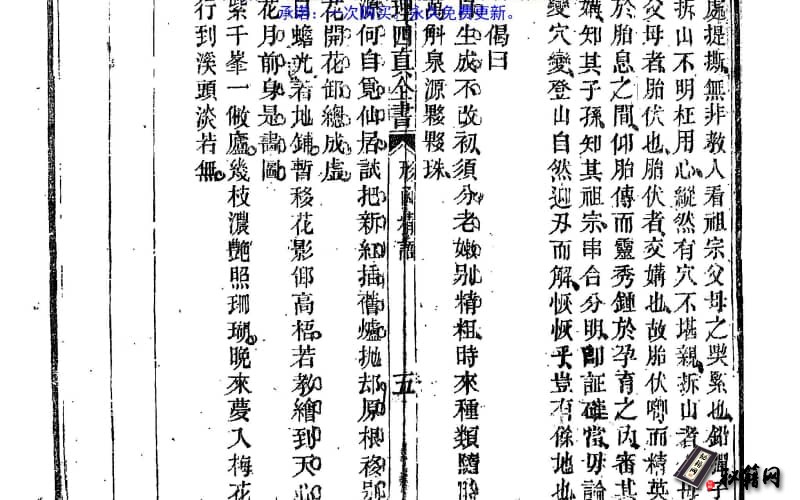 承诺：一次购买，永久免费更新。
處提撕無非教人看祖宗父母之奧係也鉛彈子
拆山不明枉用心縱然有穴不堪親拆山者
父母者胎伏也胎伏者交媾也故胎伏卿而精英
於胎息之間仰胎傳而靈秀鍾於孕育之內審其
媾知其子孫知其祖宗串合分明即証確當毋論
變穴變登山自然迎刃而解恢恢乎豈有餘地也
偈曰
生成不改初須分老嫩别精粗時來種類隨
萬斛泉源夥夥珠
理四真全書
形
五
何自覓仙居試把新紅插舊爐抛却原根移别
花開花卸總成虛
日蟾光若地鋪暫移花影御高梧若教繪到天心
花月前身是畵圖
紫千峯一敝廬幾枝濃艷照珊瑚晚來夢入梅花
行到溪頭淡若無
秘籍网